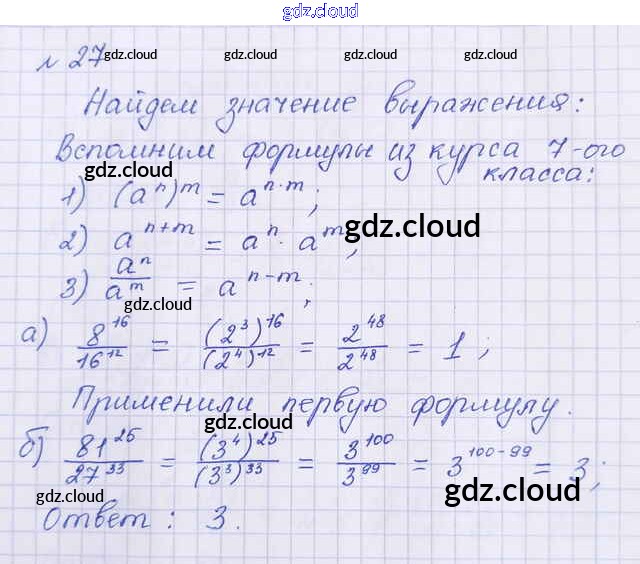 gdz.cloud
№ 27 gdz.cloud gdz.cloud gdz.cloud
Найдем значение выражения:
Вспомним формулы из курса 7-ого
gdz.cloud класса:
1) (aⁿ)ᵐ = aⁿ·ᵐ;
2) aⁿ⁺ᵐ = aⁿ · aᵐ; gdz.cloud
gdz.cloud
3) aⁿ/aᵐ = aⁿ⁻ᵐ;
gdz.cloud
а) 8¹⁶/16¹² = (2³)¹⁶/(2⁴)¹² = 2⁴⁸/2⁴⁸ = 1;
Применили первую формулу.
gdz.cloud
б) 81²⁵/27³³ = (3⁴)²⁵/(3³)³³ = 3¹⁰⁰/3⁹⁹ = 3¹⁰⁰⁻⁹⁹ = 3;
gdz.cloud gdz.cloud
Ответ: 3.
gdz.cloud